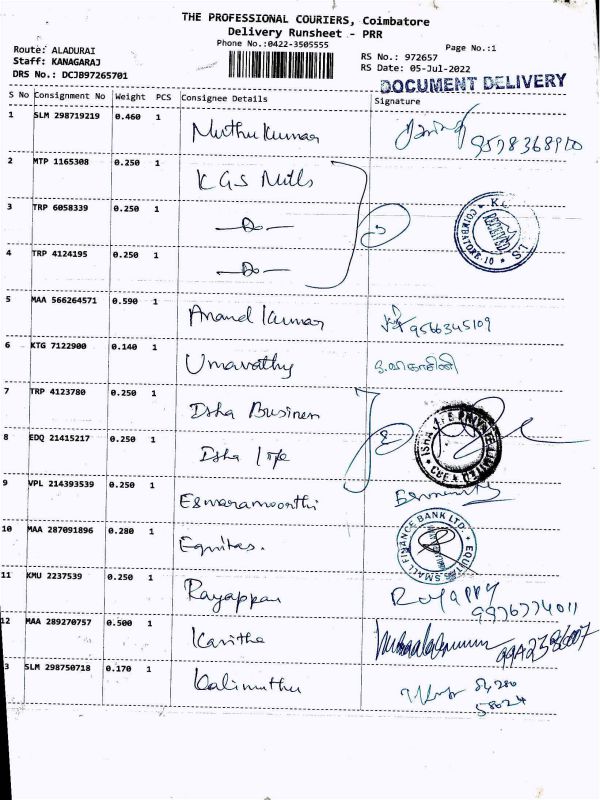 THE PROFESSIONAL COURIERS, Coimbatore
Delivery Runsheet - PRR
Phone No.:0422-3505555
Page No.:1
Route: ALADURAI
Staff: KANAGARAJ
DRS No.: DCJB97265701
RS No.: 972657
RS Date: 05-Jul-2022
DOCUMENT DELIVERY
S No Consignment No Weight PCS Consignee Details Signature
1 SLM 298719219 0.460 1 Muthu Kumar
2 MTP 1165308 0.250 1 KGS Mills
3 TRP 6058339 0.250 1 -Do-
COIMBATORE-10 RECEIVED
4 TRP 4124195 0.250 1 -Do-
5 MAA 566264571 0.590 1 Anand Kumar 9566345109
6 KTG 7122900 0.140 1 Umavathy
7 TRP 4123780 0.250 1 Isha Business
8 EDQ 21415217 0.250 1 Isha life
9 VPL 214393539 0.250 1 Eswaramoorthi
10 MAA 287091896 0.280 1 Equitas.
EQUITAS SMALL FINANCE BANK LTD
11 KMU 2237539 0.250 1 Rayappan Rayappy
12 MAA 289270757 0.500 1 Kavitha
3 SLM 298750718 0.170 1 Kalimuthu